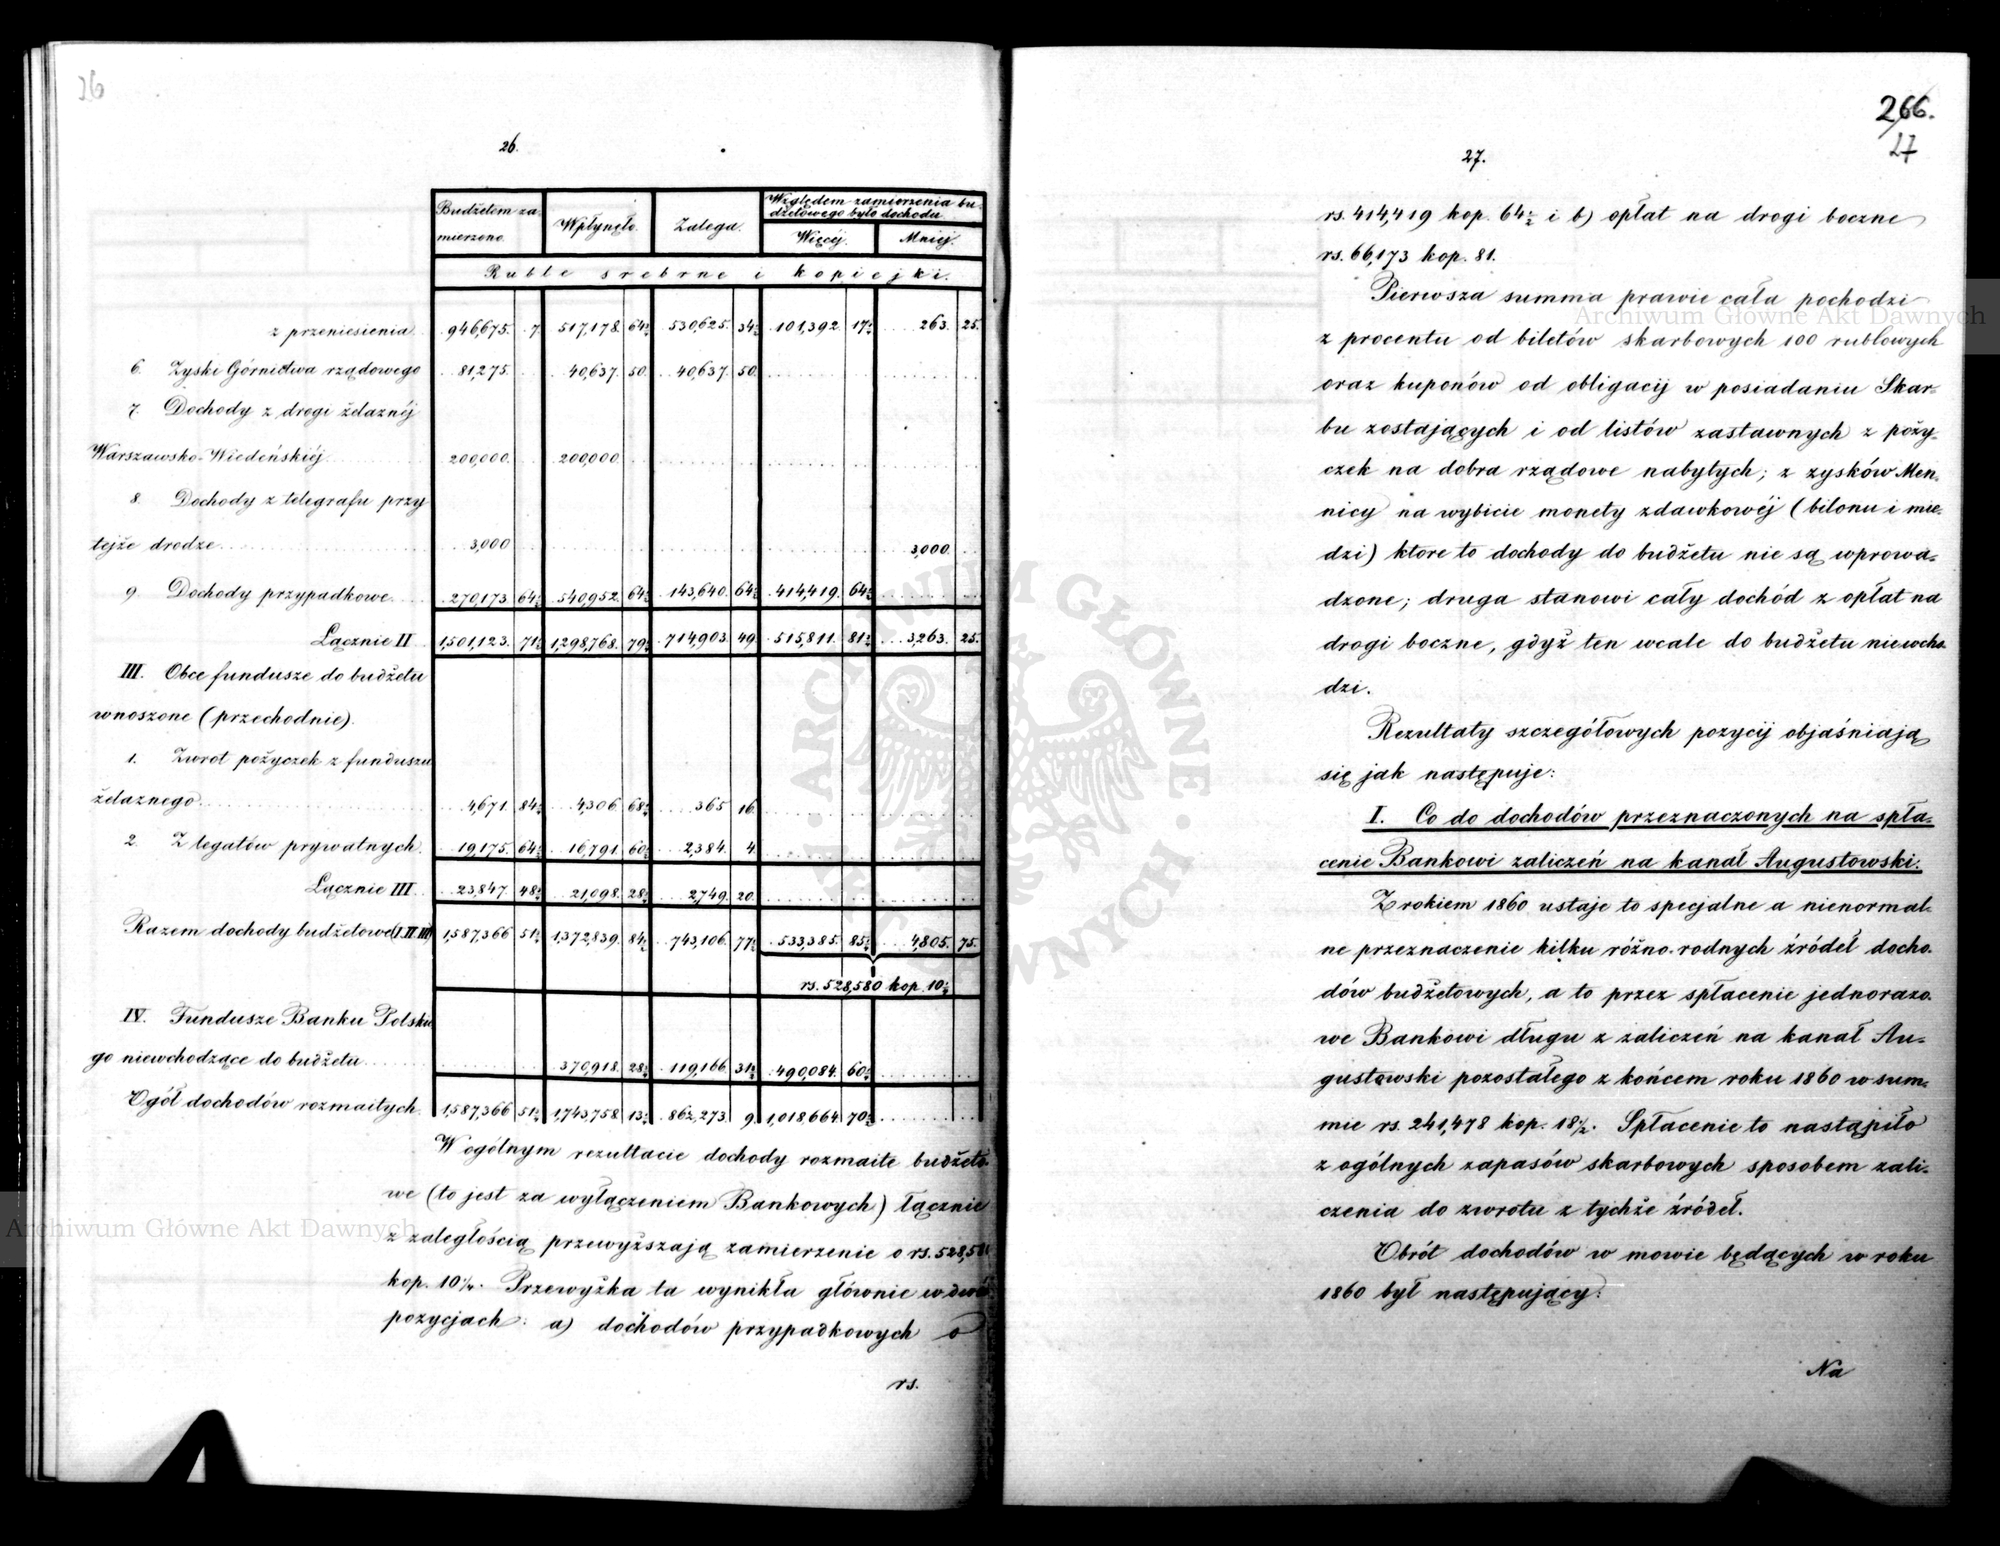 26
26.
Budżetem za-
mierzono.
Wpłynęło.
Zalega.
Względem zamierzenia bu-
dżetowego było dochodu
Więcéj.
Mniéj.
Ruble srebrne i kopiejki.
z przeniesienia 946675. 7 517,178. 64½ 530,625. 34½ 101,392 17½ 263. 25.
6. Zyski Górnictwa rządowego 81,275. 40,637. 50. 40,637. 50.
7. Dochody z drogi żelaznéj
Warszawsko-Wiedeńskiéj 200,000. 200,000.
8. Dochody z telegrafu przy
tejże drodze 3,000 3,000.
9. Dochody przypadkowe 270,173. 64½ 540,952. 64½ 143,640. 64½ 414,419. 64½
Łącznie II 1,501,123. 71½ 1,298,768. 79½ 714,903. 49 515,811. 81½ 3,263. 25.
III. Obce fundusze do budżetu
wnoszone (przechodnie).
1. Zwrot pożyczek z funduszu
żelaznego 4,671. 84½ 4,306 68½ 365 16.
2. Z legatów prywatnych. 19,175. 64½ 16,791. 60½ 2,384. 4.
Łącznie III 23,847. 48½ 21,098. 28½ 2,749. 20.
Razem dochody budżetowe (I. II. III) 1,587,366 51½ 1,372,839. 84½ 743,106. 77½ 533,385. 85½ 4,805. 75.
rs. 528,580 kop. 10½
IV. Fundusze Banku Polskie
go niewchodzące do budżetu 370,918. 28½ 119,166. 31½ 490,084. 60½
Ogół dochodów rozmaitych. 1,587,366 51½ 1,743,758. 13½ 862,273. 9. 1,018,664. 70½
W ogólnym rezultacie dochody rozmaite budżeto-
we (to jest za wyłączeniem Bankowych) łącznie
z zaległością przewyższają zamierzenie o rs. 528,580
kop. 10½. Przewyżka ta wynikła głównie w dwóch
pozycjach: a) dochodów przypadkowych o
rs.
266.
27
27.
rs. 414,419 kop. 64½ i b) opłat na drogi boczne
rs. 66,173 kop. 81.
Pierwsza summa prawie cała pochodzi
z procentu od biletów skarbowych 100 rublowych
oraz kuponów od obligacij w posiadaniu Skar-
bu zostających i od listów zastawnych z poży-
czek na dobra rządowe nabytych; z zysków Men-
nicy na wybicie monety zdawkowéj (bilonu i mie-
dzi) które to dochody do budżetu nie są wprowa-
dzone; druga stanowi cały dochód z opłat na
drogi boczne, gdyż ten wcale do budżetu niewcho-
dzi.
Rezultaty szczegółowych pozycij objaśniają
się jak następuje:
I. Co do dochodów przeznaczonych na spła-
cenie Bankowi zaliczeń na kanał Augustowski.
Z rokiem 1860 ustaje to specjalne a nienormal-
ne przeznaczenie kilku różno-rodnych źródeł docho-
dów budżetowych, a to przez spłacenie jednorazo-
we Bankowi długu z zaliczeń na kanał Au-
gustowski pozostałego z końcem roku 1860 w sum-
mie rs. 241,478 kop. 18½. Spłacenie to nastąpiło
z ogólnych zapasów skarbowych sposobem zali-
czenia do zwrotu z tychże źródeł.
Obrót dochodów w mowie będących w roku
1860 był następujący:
Na
Archiwum Główne Akt Dawnych
Archiwum Główne Akt Dawnych
ARCHIWUM GŁÓWNE AKT DAWNYCH